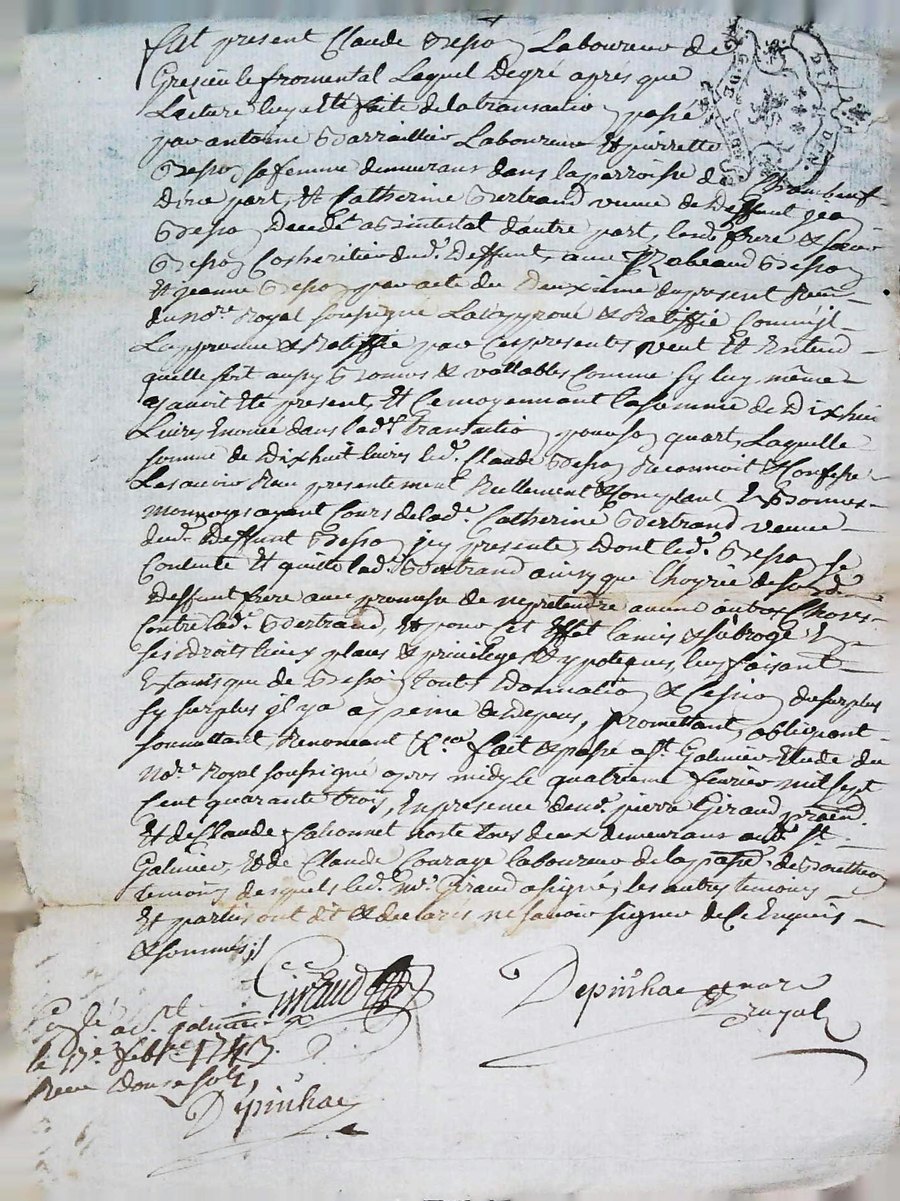 fut present Claude Besson Laboureur de
Grezieu le fromental Lequel degré aprés que
Lecture luy a eté faite de la transaction passé
par antoine Barraillier Laboureur Et pierrette
Besson sa femme demeurans dans la parroisse de Chambeuf
d'une part, Et Catherine Bertrand veuve de deffunt jean
Besson decedé ab intestat d'autre part, lesd. frere & sœur
Besson Coheritiers dud. deffunt, avec Besson
Et jeanne Besson par acte du deuxieme du present Receu
du nore. Royal soussigné La approuvé & Ratiffié Comm' jl
Lapprouve & Ratiffie par Ces presentes veut Et Entend
quelle soit aussy Bonnes & vallables Comme sy luy même
y avoit Eté present, Et Ce moyennant la somme de Dixhuit
Livres Enoncé dans lad. transaction pour son quart, Laquelle
somme de Dixhuit livres led. Claude Besson Reconnoit & Confesse
Les avoir Reçu presentement Reellement & Comptant En Bonnes
monnoyes ayant Cours de lad. Catherine Bertrand veuve
dud. deffunt Besson jcy presente, Dont led. Besson se
Contente Et quitte lad. Bertrand ainsy que l'hoyrie de sond.
deffunt frere avec promesse de ne pretendre aucune autres Choses
Contre lad. Bertrand, Et pour Cet Effet la mis & subrogé En
ses droits lieux places & privileges & ypoteques luy faisant
En tant que de Besoin toutes donnation & Cession du surplus
sy surplus jl y a a peine de depens, promettant, obligeant
soumettant, Renonceant &ca. fait & passé a st. Galmier Etude du
nore. Royal soussigné apres midy le quatrieme février mil sept
Cent quarante trois, En presence de me. pierre Giraud
Et de Claude hoste tous deux demeurans aud. st.
Galmier, Et de Claude Courage laboureur de la parre. de Bonthéon
temoins desquels led. me. Giraud a signé, les autres temoins
Et parties ont dit & declarés ne savoir signer de Ce Enquis
& sommés ;/
Giraud
Depinhac nore
royal
Con'lé a st. galmier
le 17e. febr. 1743.
Receu douse sols,
Depinhac